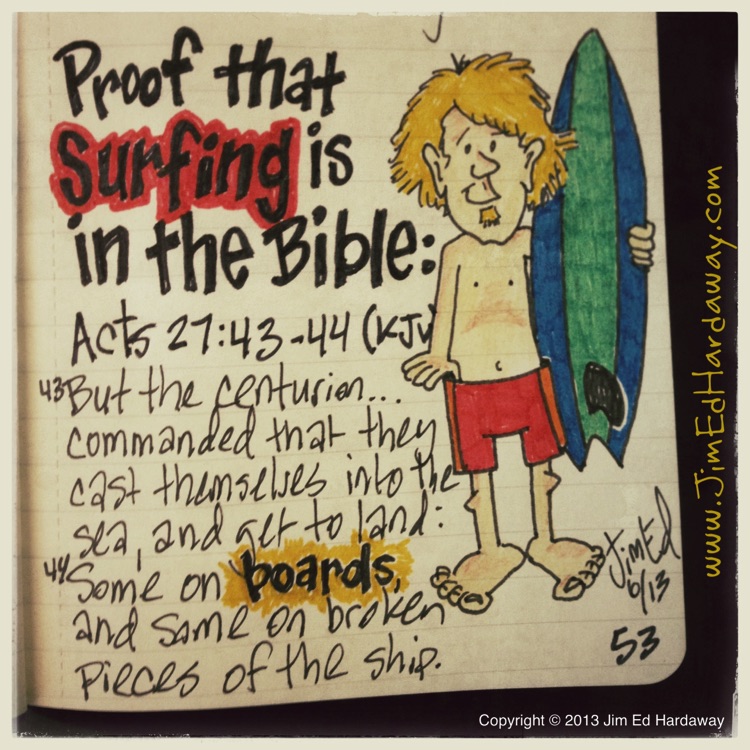 Proof that
Surfing is
in the Bible:
Acts 27:43-44 (KJV)
43 But the centurion...
commanded that they
cast themselves into the
sea, and get to land:
44 Some on boards,
and some on broken
pieces of the ship.
JimEd
6/13
53
www.JimEdHardaway.com
Copyright © 2013 Jim Ed Hardaway